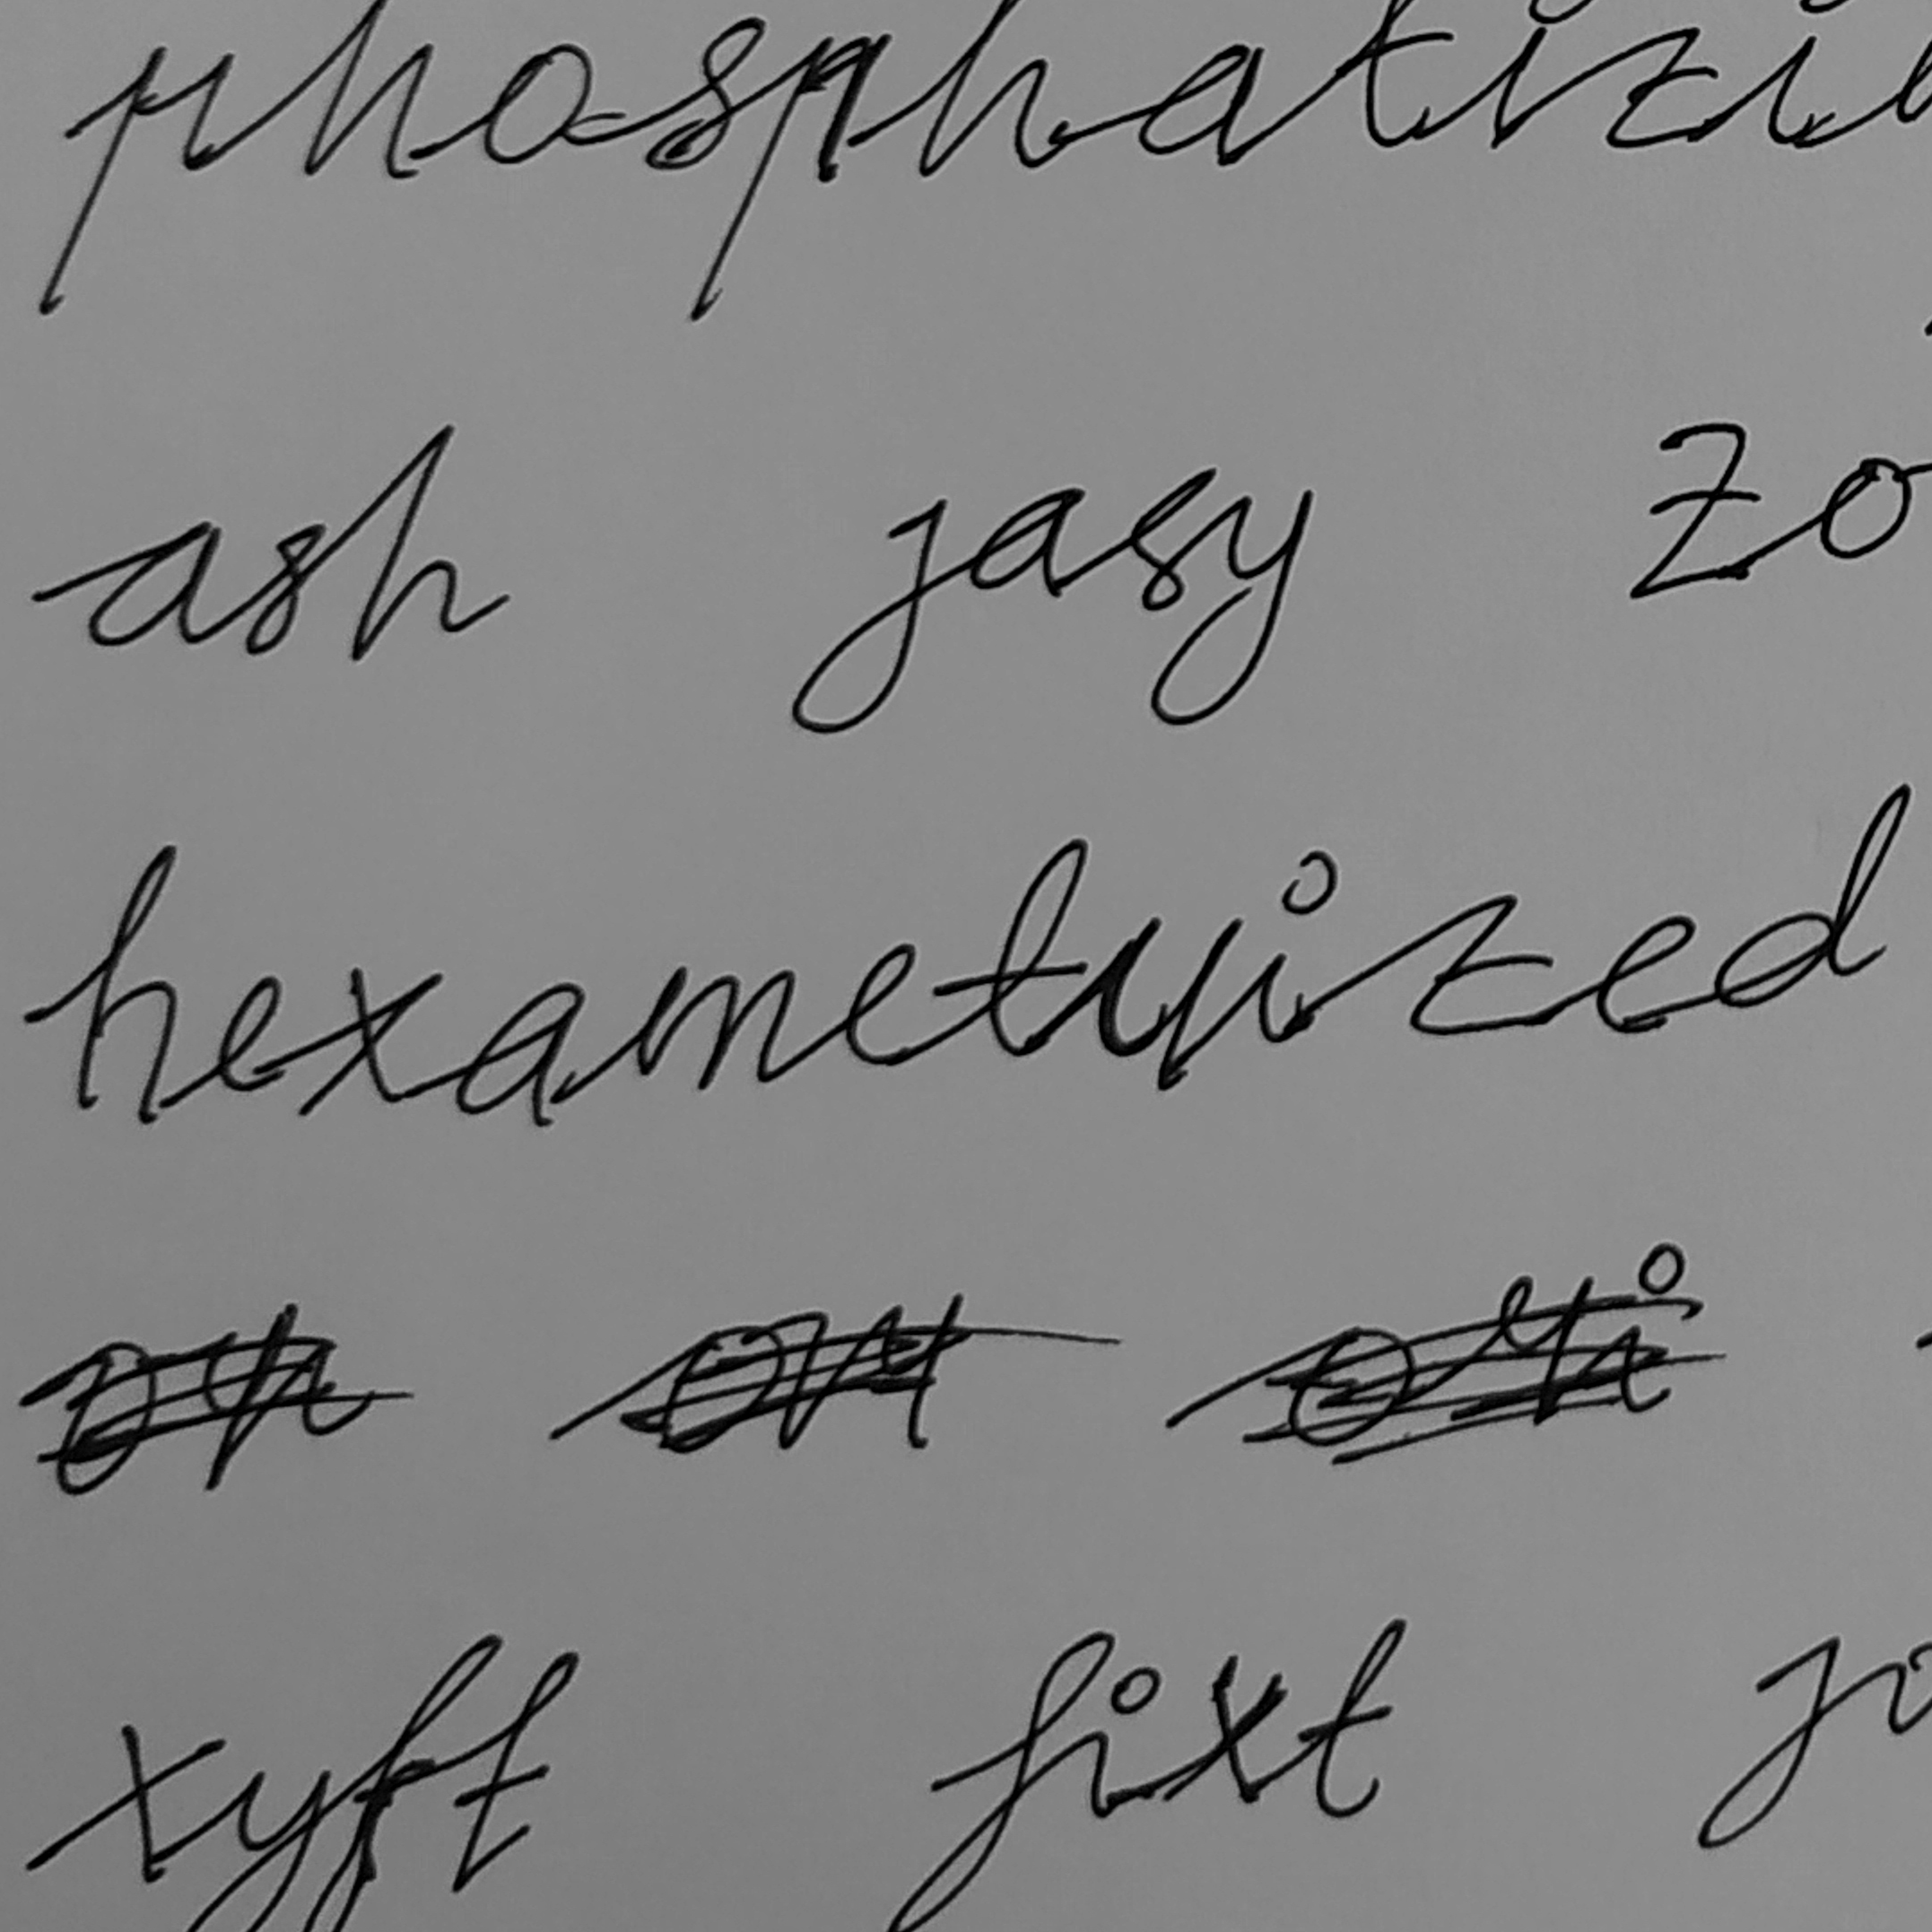 phosphatizi
ash jasy zo
hexametrized
xyft fixt jo